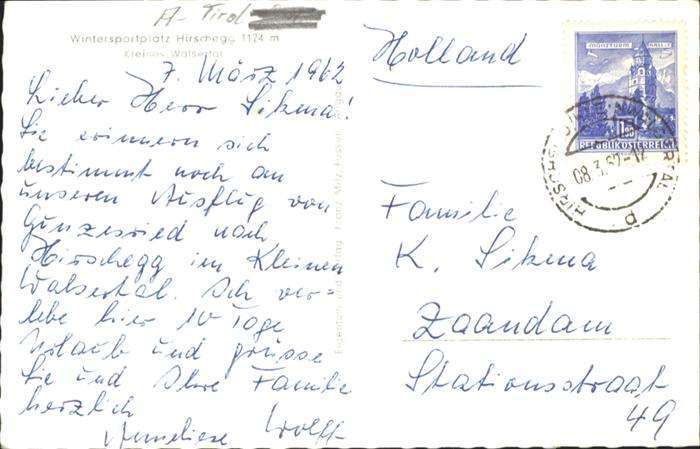 A- Tirol
Wintersportplatz Hirschegg 1124 m
Kleines Walsertal
7. März 1962
Lieber Herr Sikma!
Sie erinnern sich
bestimmt noch an
unseren Ausflug von
Gunzesried nach
Hirschegg im Kleinen
Walsertal. Ich ver=
lebe hier 10 Tage
Urlaub und grüsse
Sie und Ihre Familie
herzlich
Anneliese Wolff
Holland
REPUBLIK ÖSTERREICH
08.3.62-12
Familie
K. Sikma
Zaandam
Stationsstraat
49